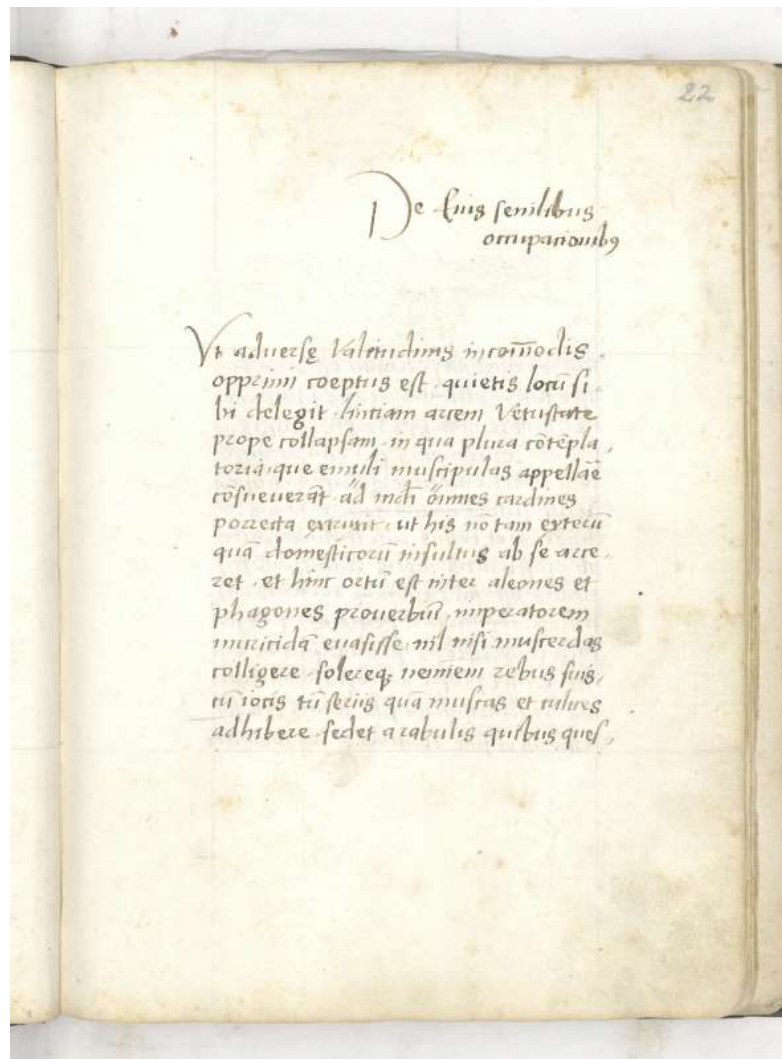 22
De Eius senilibus
occupationibꝰ
Vt aduersę Valitudinis incom̄odis
opprimi coeptus est · quietis locū si-
bi delegit linciam arcem Vetustate
prope collapsam · in qua plura cōtēpla,
toria · que emuli muscipulas appellāe
cōsueuerāt ad mūdi omnes cardines
porrecta extruxit · ut his nō tam exterū
quā domesticorū insultus ab se arce,
ret · et hinc ortū est inter aleones et
phagones prouerbiū · imperatorem
muricidā euasisse · nil nisi muscerdas
colligere · solereqꝫ neminem rebus suis,
cū iocis tū seriis quā muscas et culices
adhibere · sed et a rabulis quibus ques,